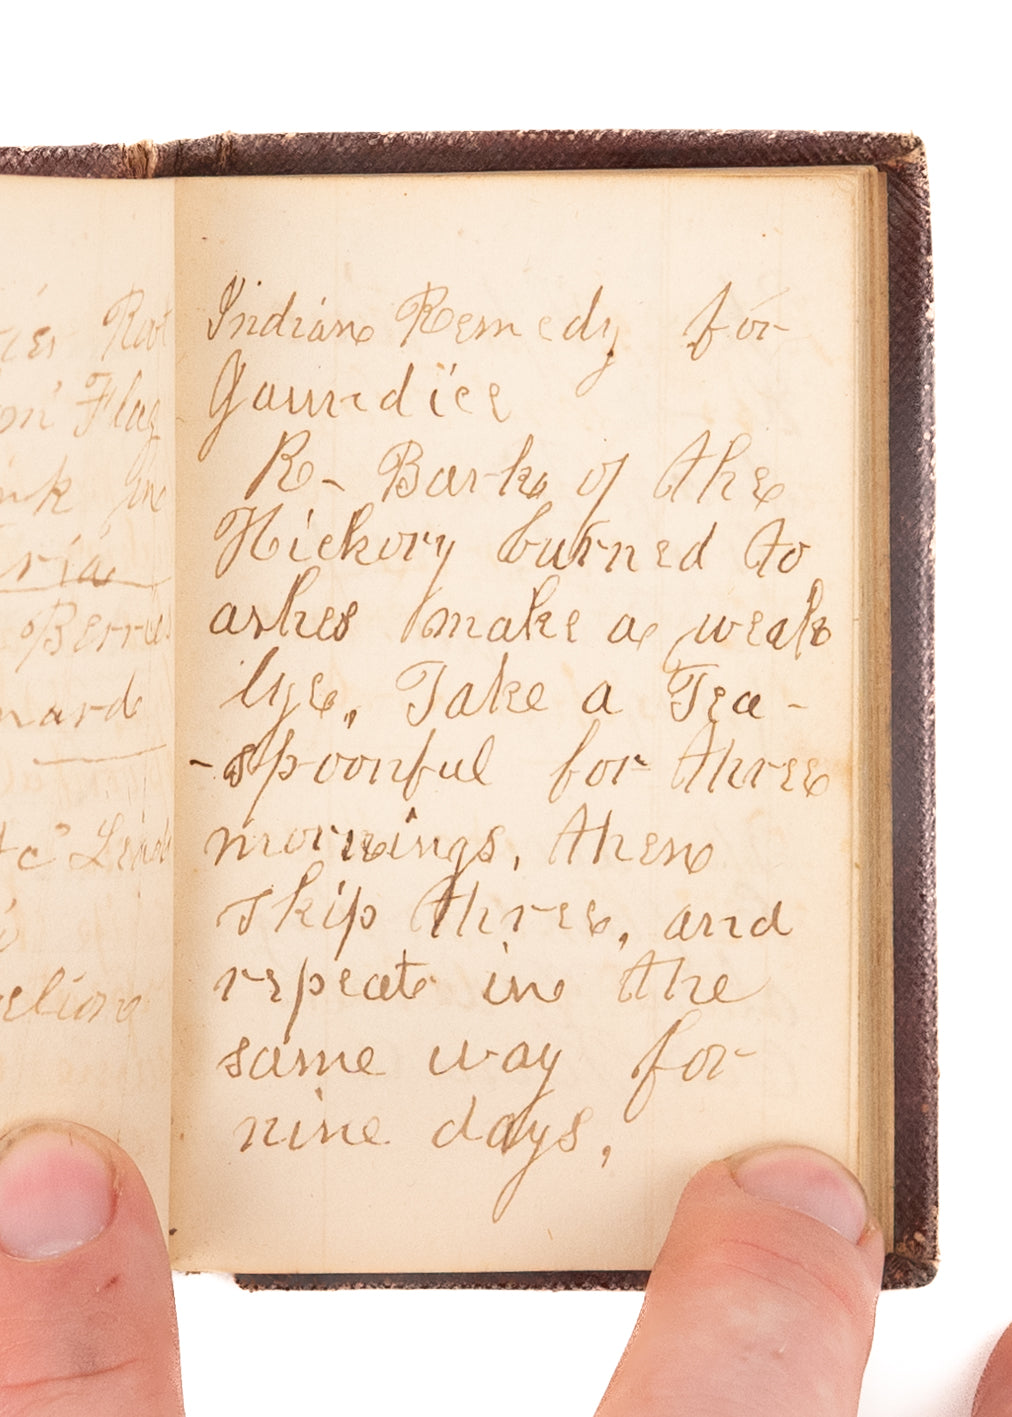 Root
Flag
Berries
Indian Remedy for
Gaundice
R - Bark of the
Hickory burned to
ashes make a weak
lye, Take a Tea-
-spoonful for three
mornings, then
skip three, and
repeate in the
same way for
nine days,